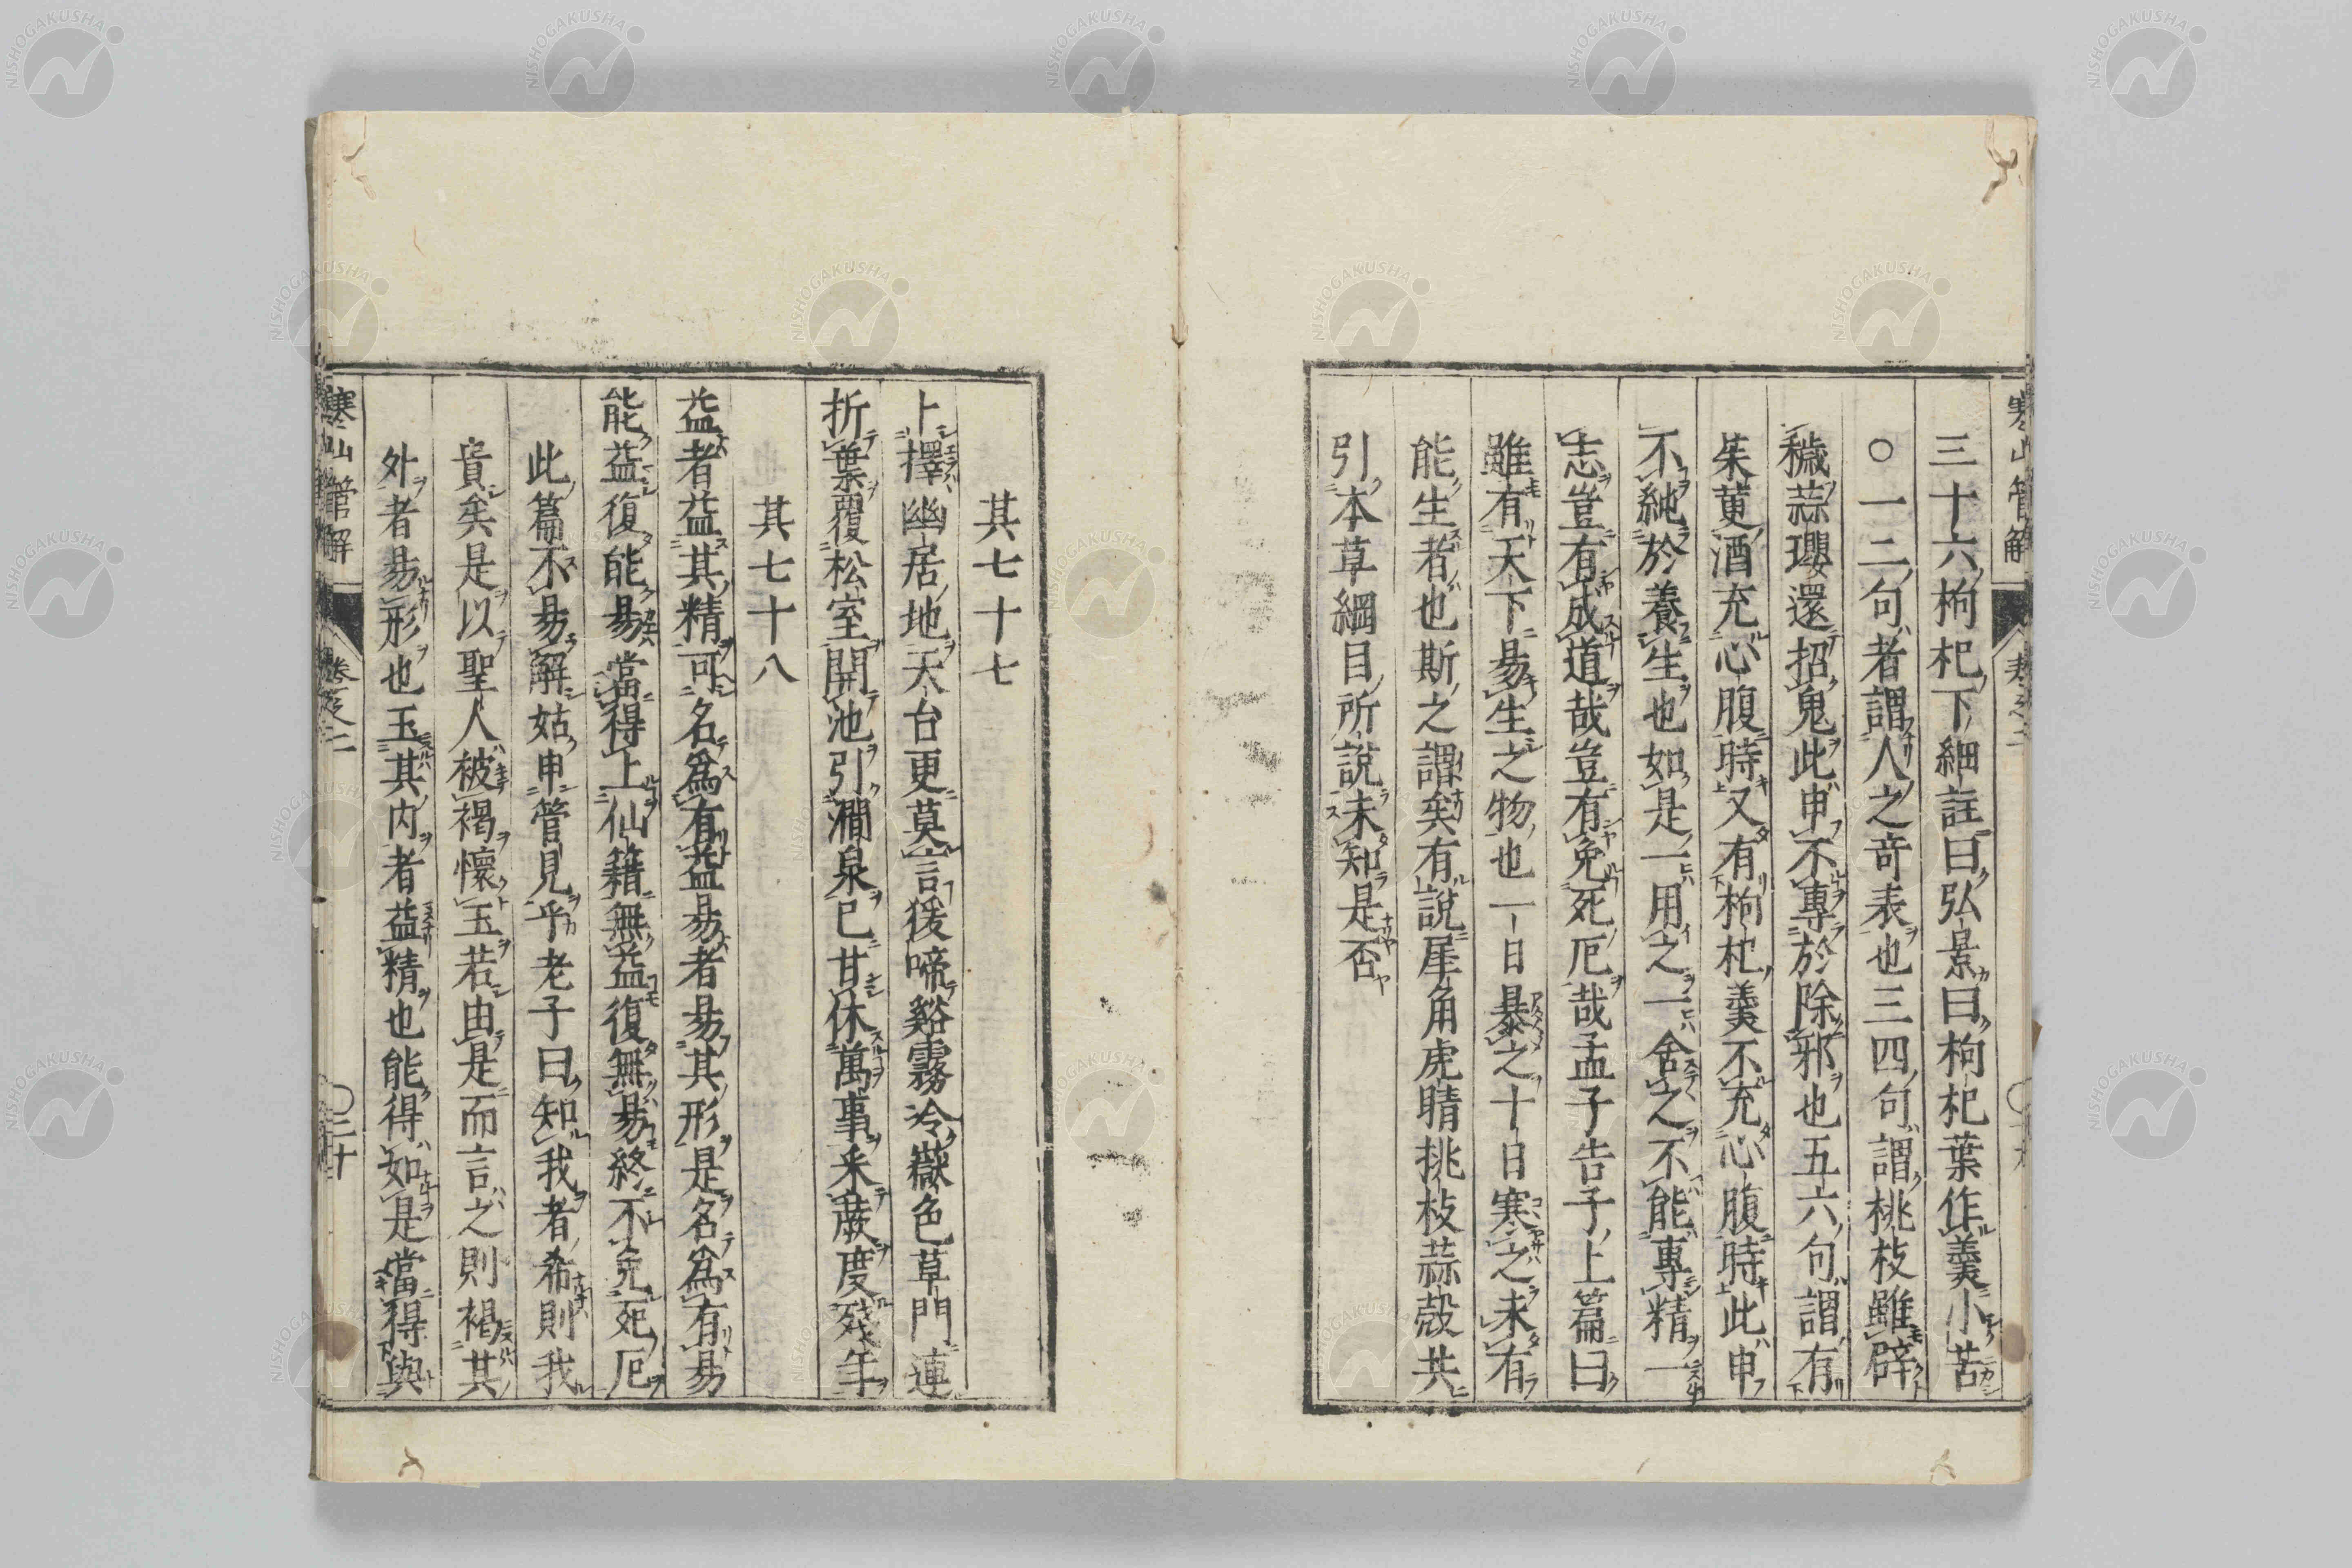 寒山管解
卷之二
三十六枸杞下細註曰弘景曰枸杞葉作羹小苦
○一二句者謂人之奇表也三四句謂桃枝雖辟
穢蒜瓔還招鬼此申不專於除邪也五六句謂有
茱萸酒充心腹時又有枸杞羹不充心腹時此申
不純於養生也如是一用之一舍之不能專精一
志豈有成道哉豈有免死厄哉孟子告子上篇曰
雖有天下易生之物也一日暴之十日寒之未有
能生者也斯之謂矣有說犀角虎睛挑枝蒜殼共
引本草綱目所說未知是否
其七十七
卜擇幽居地天台更莫言猨啼谿霧冷嶽色草門連
折葉覆松室開池引澗泉已甘休萬事采蕨度殘年
其七十八
益者益其精可名為有益易者易其形是名為有易
能益復能易當得上仙籍無益復無易終不免死厄
此篇不易解姑申管見乎老子曰知我者希則我
貴矣是以聖人被褐懷玉若由是而言之則褐其
外者易形也玉其內者益精也能得如是當得與
寒山管解
卷之二
○三十
NISHOGAKUSHA